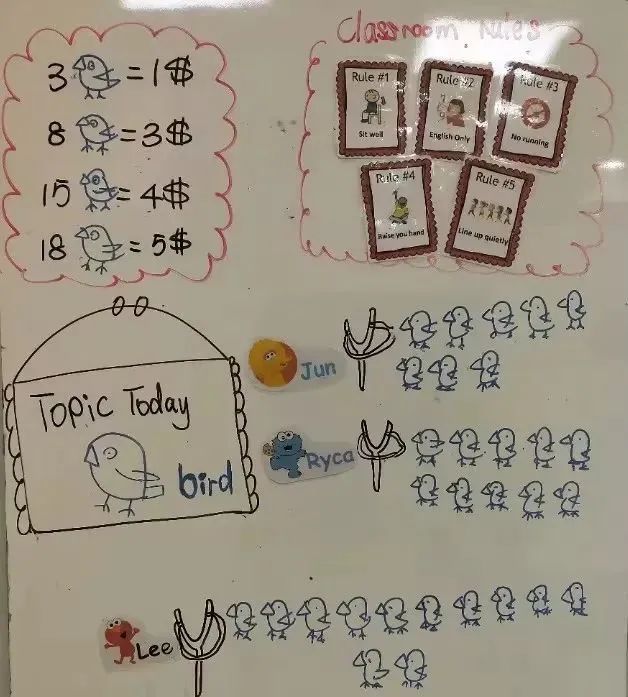 3 = 1$
8 = 3$
15 = 4$
18 = 5$
Classroom Rules
Rule #1
Sit well
Rule #2
English Only
Rule #3
No running
Rule #4
Raise you hand
Rule #5
Line up quietly
Topic Today
bird
Jun
Ryca
Lee